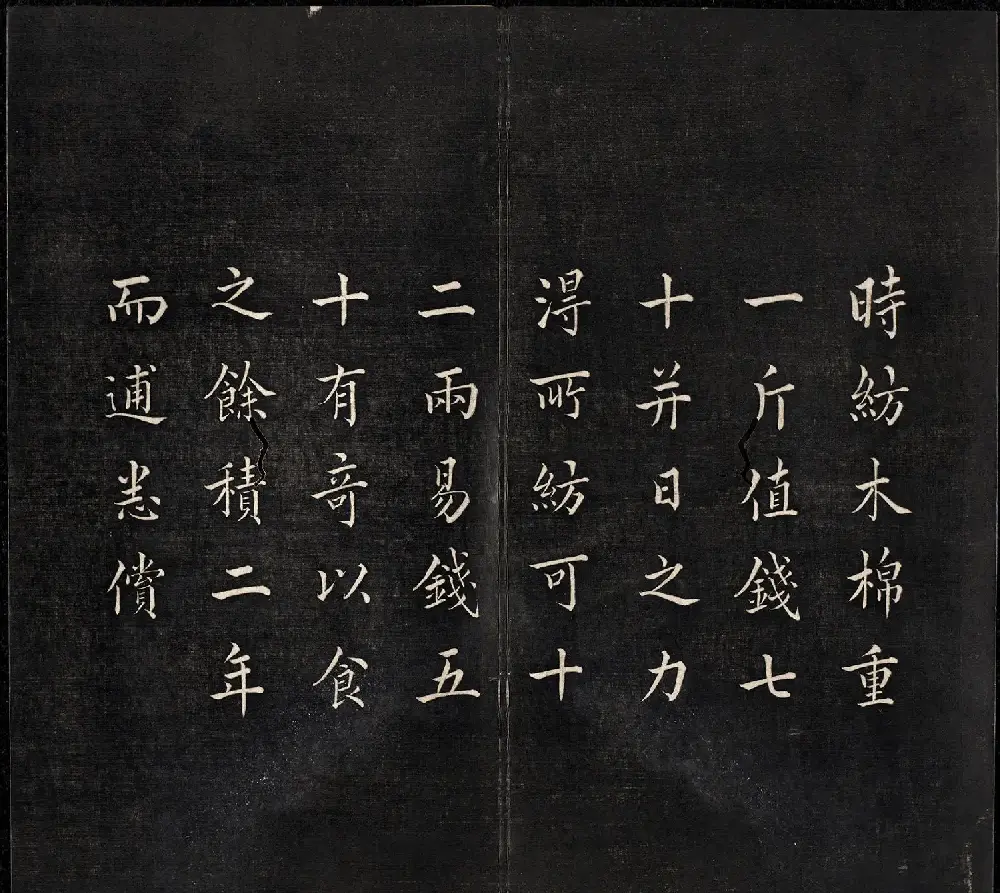 時紡木棉重
一斤值錢七
十并日之力
淂所紡可十
二兩易錢五
十有竒以食
之餘積二年
而逋悉償